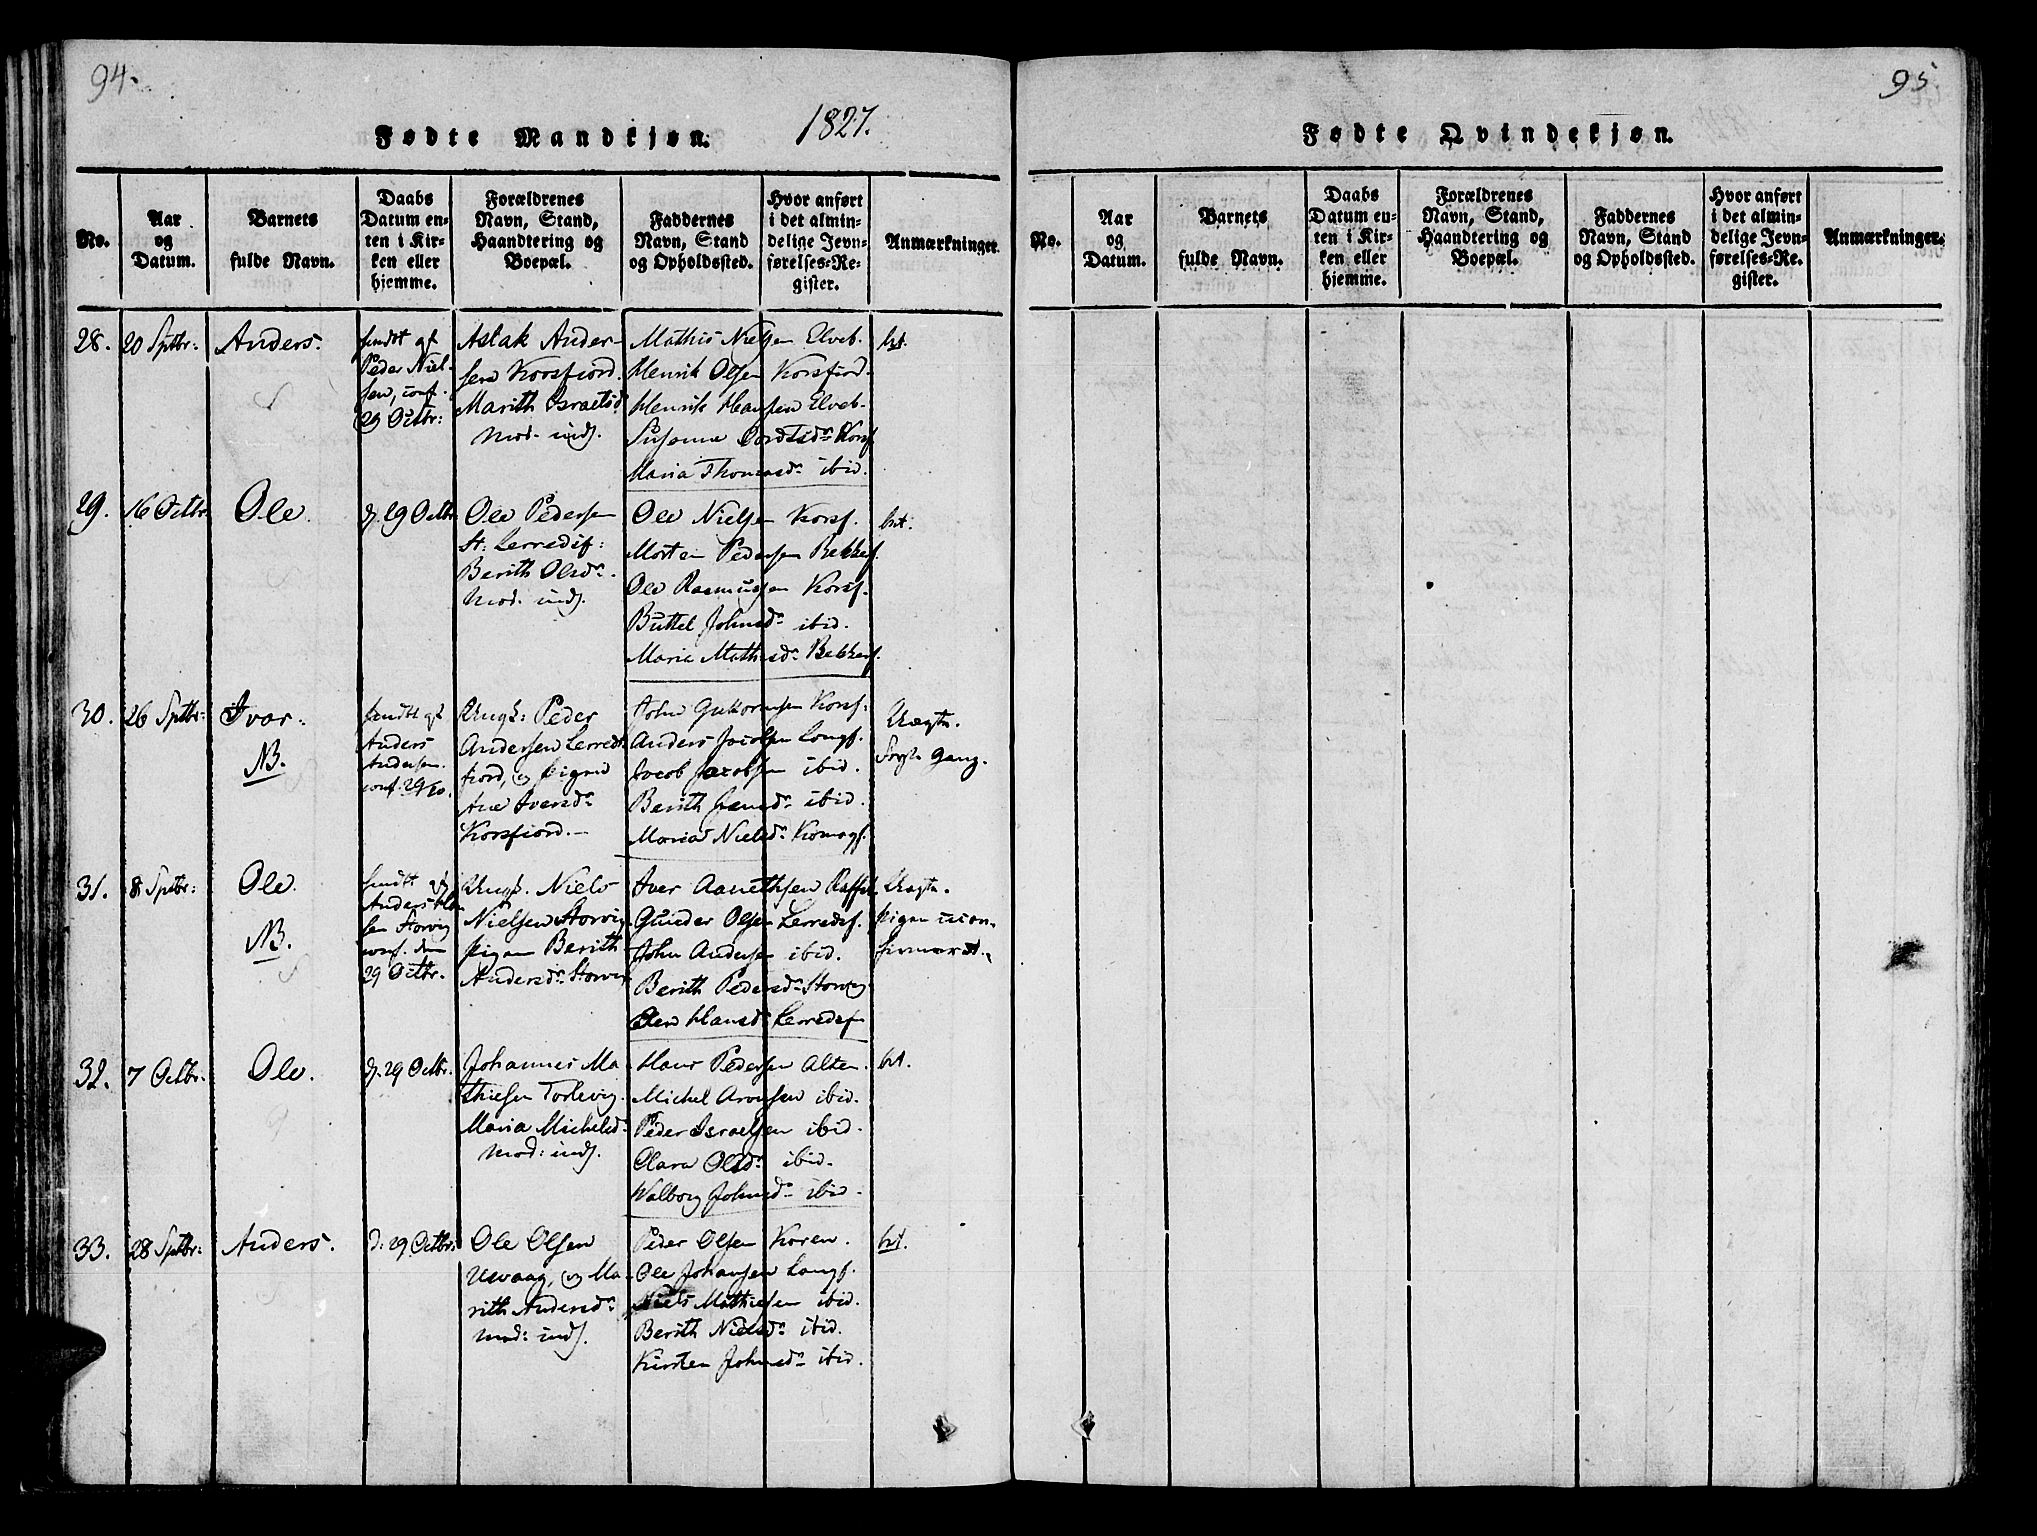 94.
1827.
Fødte Mandkjøn.
No.
Aar
og
Datum.
Barnets
fulde Navn.
Daabs
Datum en-
ten i Kir-
ken eller
hjemme.
Forældrenes
Navn, Stand,
Haandtering og
Boepæl.
Faddernes
Navn, Stand
og Opholdssted.
Hvor anført
i det almin-
delige Jevn-
førelses-Re-
gister.
Anmærkninger.
28.
20 Sptbr:
Anders.
Peder Niel-
sen, conf.
29 Octbr:
Aslak Ander-
sen Korsfiord.
Marith Israelsd
mod. inds.
Mathis Nielsen Elveb.
Henrik Olsen Korsfiord.
Henrik Hansen Elveb.
Susanne Korsf
Maria Thomasdr ibid.
29.
16 Octbr.
Ole.
d. 29 Octbr
Ole Pedersen
St: Lerredsf:
Berith Olsdr.
mod. inds.
Ole Nielsen Korsf.
Morten Pedersen Bekkef.
Ole Rasmussen Korsf.
Buttel Johnsdr ibid.
Maria Mathisdr Bekkerf.
30.
26 Sptbr:
Ivar.
NB.
Anders
Andersen
conf. 29/10.
Ungk: Peder
Andersen Lerreds
fiord, og Pigen
Ane Iversdr
Korsfiord.
John Korsf:
Anders Jacobsen Langf.
Jacob Jacobsen ibid.
Berith ibid.
Maria Nielsdr Komagf.
Uægte.
Gang.
31.
8 Sptbr:
Ole.
NB.
Anders
sen Storvig
conf. den
29 Octbr.
Ungk. Niels
Nielsen Storvig
Pigen Berith
Andersdr Storvig
Iver Raffsb.
Gunder Olsen Lerredsf.
John Andersen ibid.
Berith Pedersdr Storvig
Elen Hansdr Lerredsf
Uægte.
Pigen ucon-
firmeret.
32.
7 Octbr.
Ole.
d. 29 Octbr.
Johannes Ma
thiesen Torlevig.
Maria Michelsdr
mod: inds.
Hans Pedersen Alten.
Michel Aronsen ibid.
Peder Israelsen ibid.
Clara Olsdr ibid.
Walborg Johnsdr ibid.
33.
28 Sptbr:
Anders.
d: 29 Octbr.
Ole Olsen
og Ma-
rith Andersdr
mod: inds.
Peder Olsen Koren.
Ole Johansen Langf.
Niels Mathiesen ibid.
Berith Nielsdr ibid.
Kirsten Johnsdr ibid.
95
Fødte Qvindekjøn.
No.
Aar
og
Datum.
Barnets
fulde Navn.
Daabs
Datum en-
ten i Kir-
ken eller
hjemme.
Forældrenes
Navn, Stand,
Haandtering og
Boepæl.
Faddernes
Navn, Stand
og Opholdssted.
Hvor anført
i det almin-
delige Jevn-
førelses-Re-
gister.
Anmærkninger.